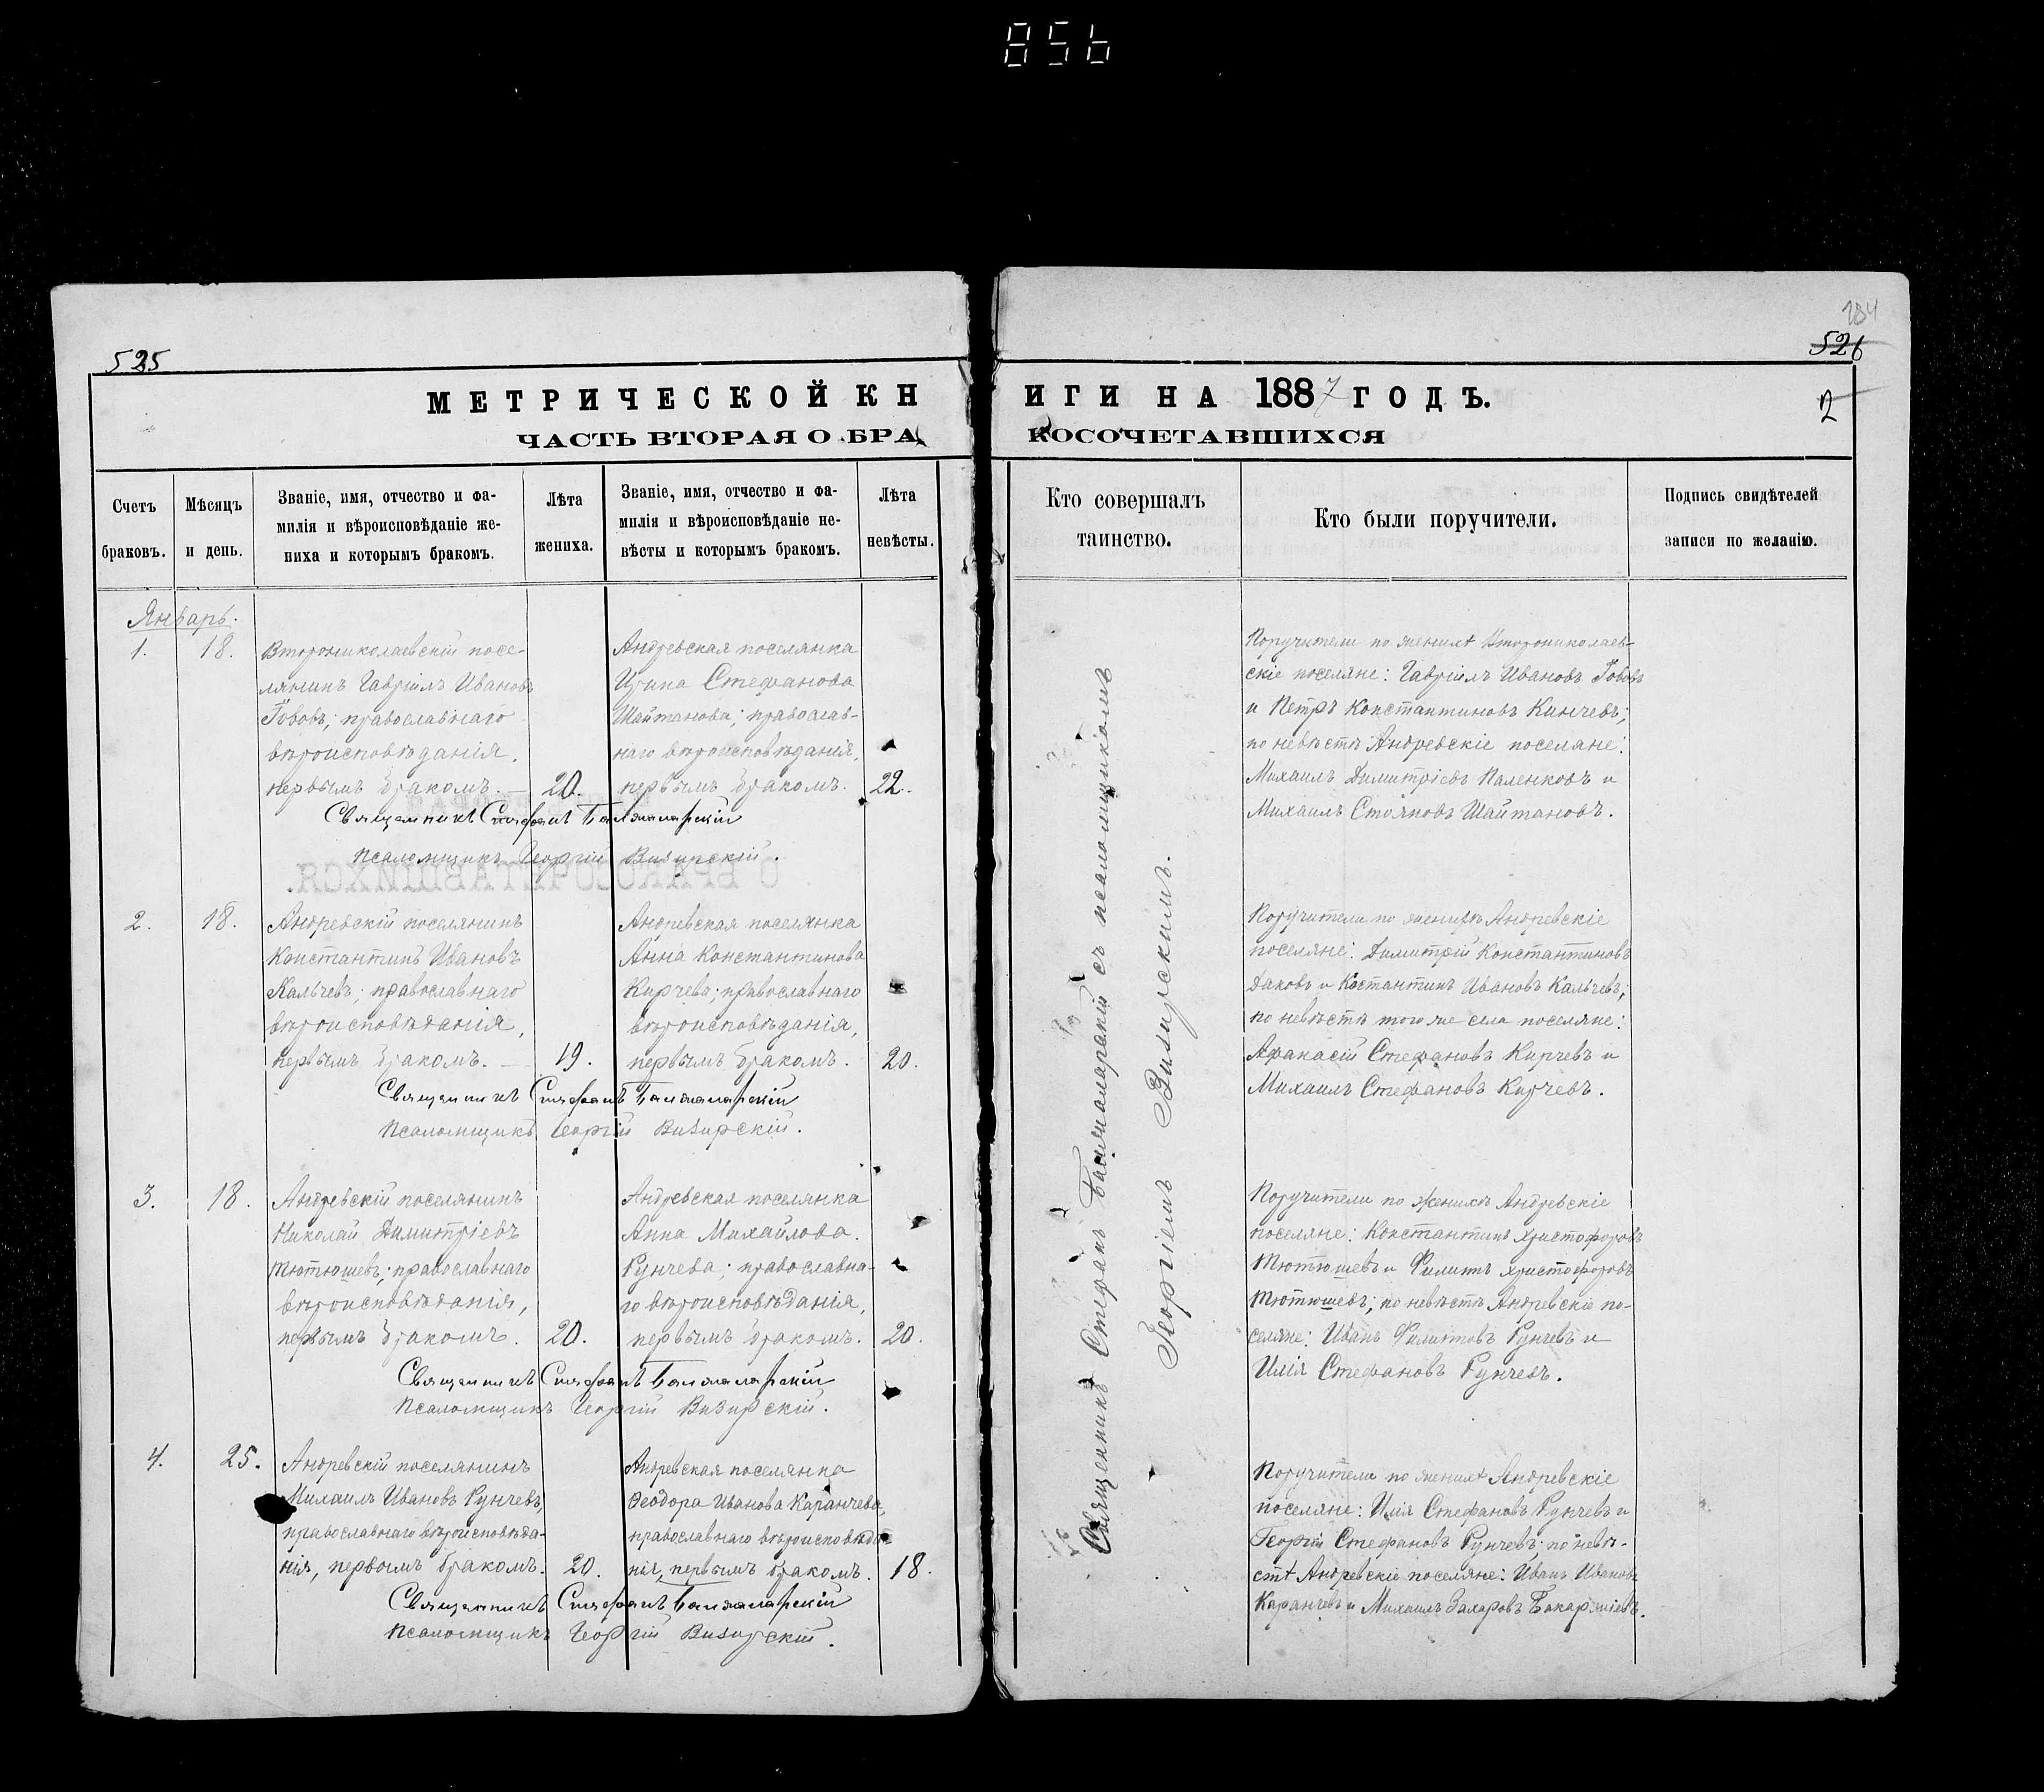 856
184
525
526
МЕТРИЧЕСКОЙ КНИГИ НА 1887 ГОДЪ.
2
ЧАСТЬ ВТОРАЯ О БРАКОСОЧЕТАВШИХСЯ
Счетъ браковъ.
Мѣсяцъ и день.
Званіе, имя, отчество и фа-
милія и вѣроисповѣданіе же-
ниха и которымъ бракомъ.
Лѣта жениха.
Званіе, имя, отчество и фа-
милія и вѣроисповѣданіе не-
вѣсты и которымъ бракомъ.
Лѣта невѣсты.
Кто совершалъ
таинство.
Кто были поручители.
Подпись свидѣтелей
записи по желанію.
Январь.
1.
18.
Второниколаевскій посе-
лянинъ Гавріилъ Ивановъ
Гововъ; православнаго
вѣроисповѣданія,
первымъ бракомъ. —
20.
Андревская поселянка
Ирина Стефанова
Шайтанова; православ-
наго вѣроисповѣданія,
первымъ бракомъ.
22.
Священникъ Стефанъ Балжаларскій
Псаломщикъ Георгій Визирскій.
Поручители по женихѣ Второниколаев-
скіе поселяне: Гавріилъ Ивановъ Гововъ
и Петръ Константиновъ Кинчевъ;
по невѣстѣ Андревскіе поселяне:
Михаилъ Димитріевъ Паленковъ и
Михаилъ Стояновъ Шайтановъ.
2.
18.
Андревскій поселянинъ
Константинъ Ивановъ
Кальчевъ; православнаго
вѣроисповѣданія,
первымъ бракомъ. —
19.
Андревская поселянка
Анна Константинова
Кирчева; православнаго
вѣроисповѣданія,
первымъ бракомъ.
20.
Священникъ Стефанъ Балжаларскій
Псаломщикъ Георгій Визирскій.
Поручители по женихѣ Андревскіе
поселяне: Димитрій Константиновъ
Даковъ и Костантинъ Ивановъ Кальчевъ;
по невѣстѣ того же села поселяне:
Афанасій Стефановъ Кирчевъ и
Михаилъ Стефановъ Кирчевъ.
3.
18.
Андревскій поселянинъ
Николай Димитріевъ
Тютюшевъ; православнаго
вѣроисповѣданія,
первымъ бракомъ.
20.
Андревская поселянка
Анна Михайлова
Рунчева; православна-
го вѣроисповѣданія,
первымъ бракомъ.
20.
Священникъ Стефанъ Балжаларскій
Псаломщикъ Георгій Визирскій.
Поручители по женихѣ Андревскіе
поселяне: Константинъ Христофоровъ
Тютюшевъ и Филиппъ Христофоровъ
Тютюшевъ; по невѣстѣ Андревскіе по-
селяне: Иванъ Филипповъ Рунчевъ и
Илія Стефановъ Рунчевъ.
4.
25.
Андревскій поселянинъ
Михаилъ Ивановъ Рунчевъ,
православнаго вѣроисповѣда-
нія, первымъ бракомъ.
20.
Андревская поселянка
Ѳеодора Иванова Каранчева,
православнаго вѣроисповѣда-
нія, первымъ бракомъ.
18.
Священникъ Стефанъ Балжаларскій
Псаломщикъ Георгій Визирскій.
Поручители по женихѣ Андревскіе
поселяне: Илія Стефановъ Рунчевъ и
Георгій Стефановъ Рунчевъ; по невѣ-
стѣ Андревскіе поселяне: Иванъ Ивановъ
Каранчевъ и Михаилъ Захаровъ
Священникъ Стефанъ Балжаларскій съ псаломщикомъ
Георгіемъ Визирскимъ.